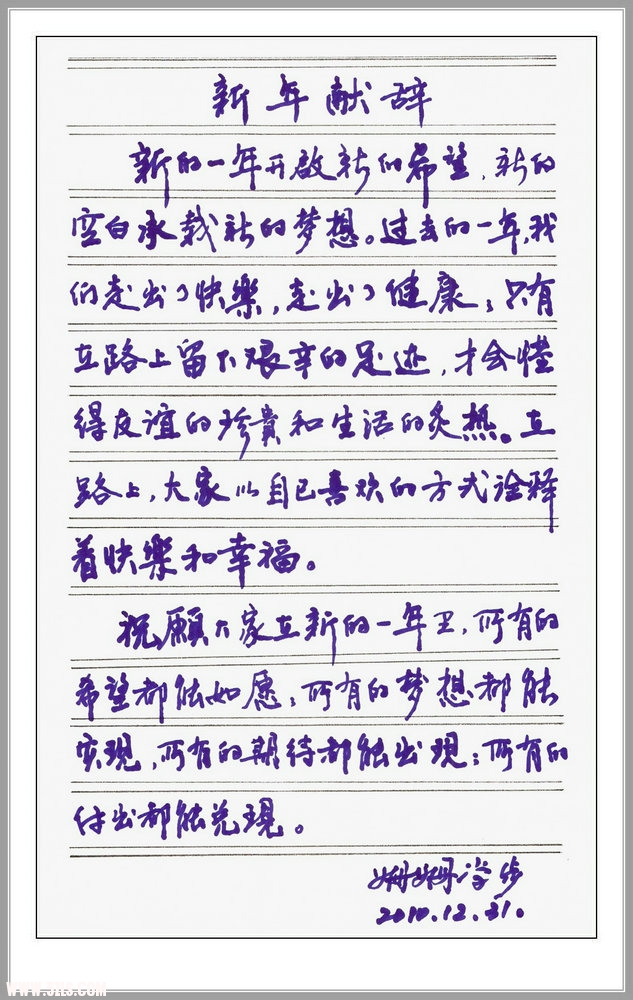 新年献辞
新的一年开启新的希望，新的
空白承载新的梦想。过去的一年，我
们走出了快樂，走出了健康；只有
在路上留下艰辛的足迹，才会懂
得友谊的珍貴和生活的炙热。在
路上，大家以自己喜欢的方式诠释
着快樂和幸福。
祝愿大家在新的一年里，所有的
希望都能如愿；所有的梦想都能
实现，所有的期待都能出现；所有的
付出都能兑现。
姗姗学步
2010.12.31.